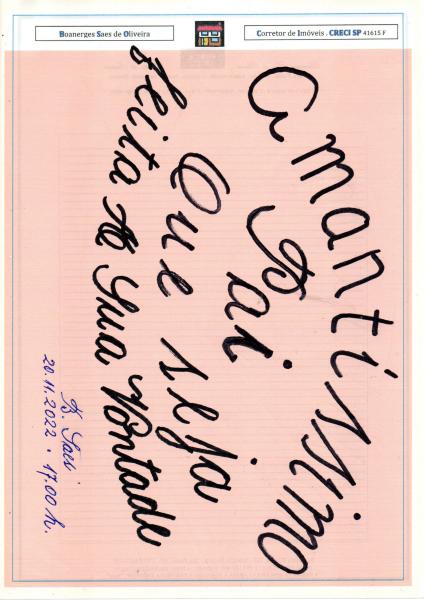 Boanerges Saes de Oliveira
Corretor de Imóveis . CRECI SP 41615 F
Amantíssimo
Pai
Que seja
Feita A Sua Vontade
B. Saes
20.11.2022 . 17.00 h.